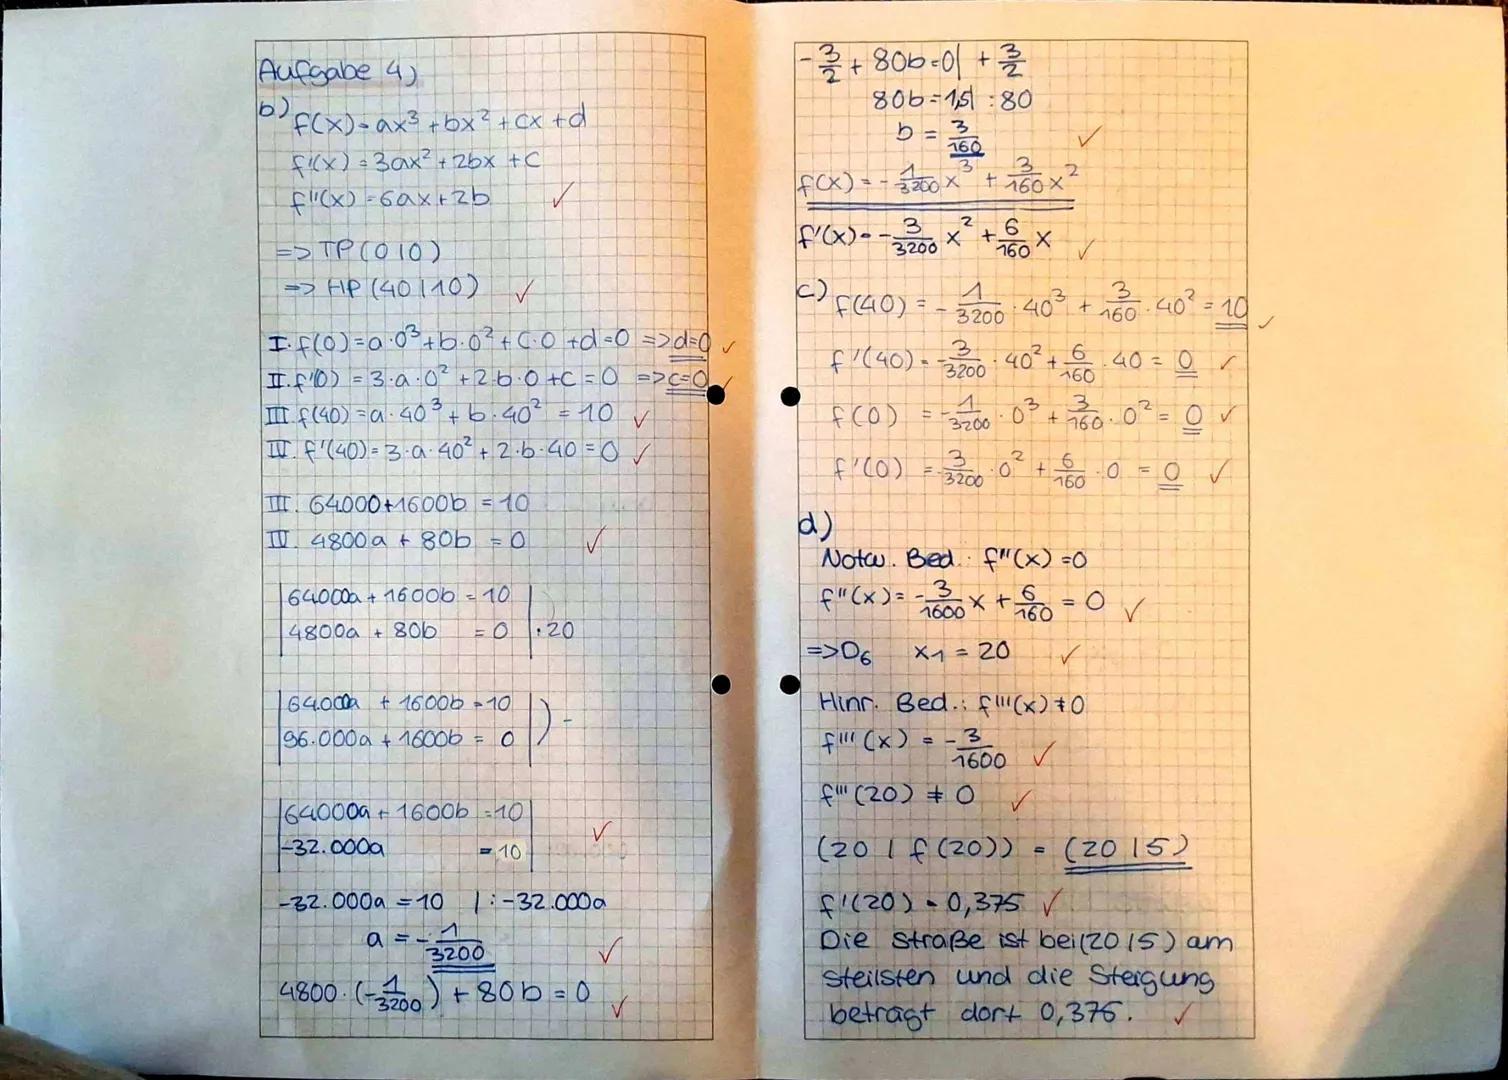 Aufgabe 4)
b) f(x)=ax³+bx²+cx+d
f'(x)=3ax²+2bx+c
f''(x)=6ax+2b ✓
=> TP(0|0)
=> HP(40|10) ✓
I. f(0)=a·0³+b·0²+c·0+d=0 =>d=0 ✓
II. f'(0)=3·a·0²+2·b·0+c=0 =>c=0 ✓
III. f(40)=a·40³+b·40²=10 ✓
IV. f'(40)=3·a·40²+2·b·40=0 ✓
III. 64000+1600b=10
IV. 4800a+80b=0 ✓
|64000a+1600b=10|
|4800a+80b=0|·20
|64.000a+1600b=10|
|96.000a+1600b=0|)-
|64000a+1600b=10|
|-32.000a=10| ✓
-32.000a=10 |:-32.000a
a=-1/3200 ✓
4800·(-1/3200)+80b=0 ✓
-3/2+80b=0|+3/2
80b=1,5|:80
b=3/160 ✓
f(x)=-1/3200x³+3/160x²
f'(x)=-3/3200x²+6/160x ✓
c) f(40)=-1/3200·40³+3/160·40²=10 ✓
f'(40)=-3/3200·40²+6/160·40=0 ✓
f(0)=-1/3200·0³+3/160·0²=0 ✓
f'(0)=-3/3200·0²+6/160·0=0 ✓
d)
Notw. Bed.: f''(x)=0
f''(x)=-3/1600x+6/160=0 ✓
=>D6 x₁=20 ✓
Hinr. Bed.: f'''(x)≠0
f'''(x)=-3/1600 ✓
f'''(20)≠0 ✓
(20|f(20))=(20|5)
f'(20)=0,375 ✓
Die Straße ist bei(20|5) am
steilsten und die Steigung
beträgt dort 0,375. ✓